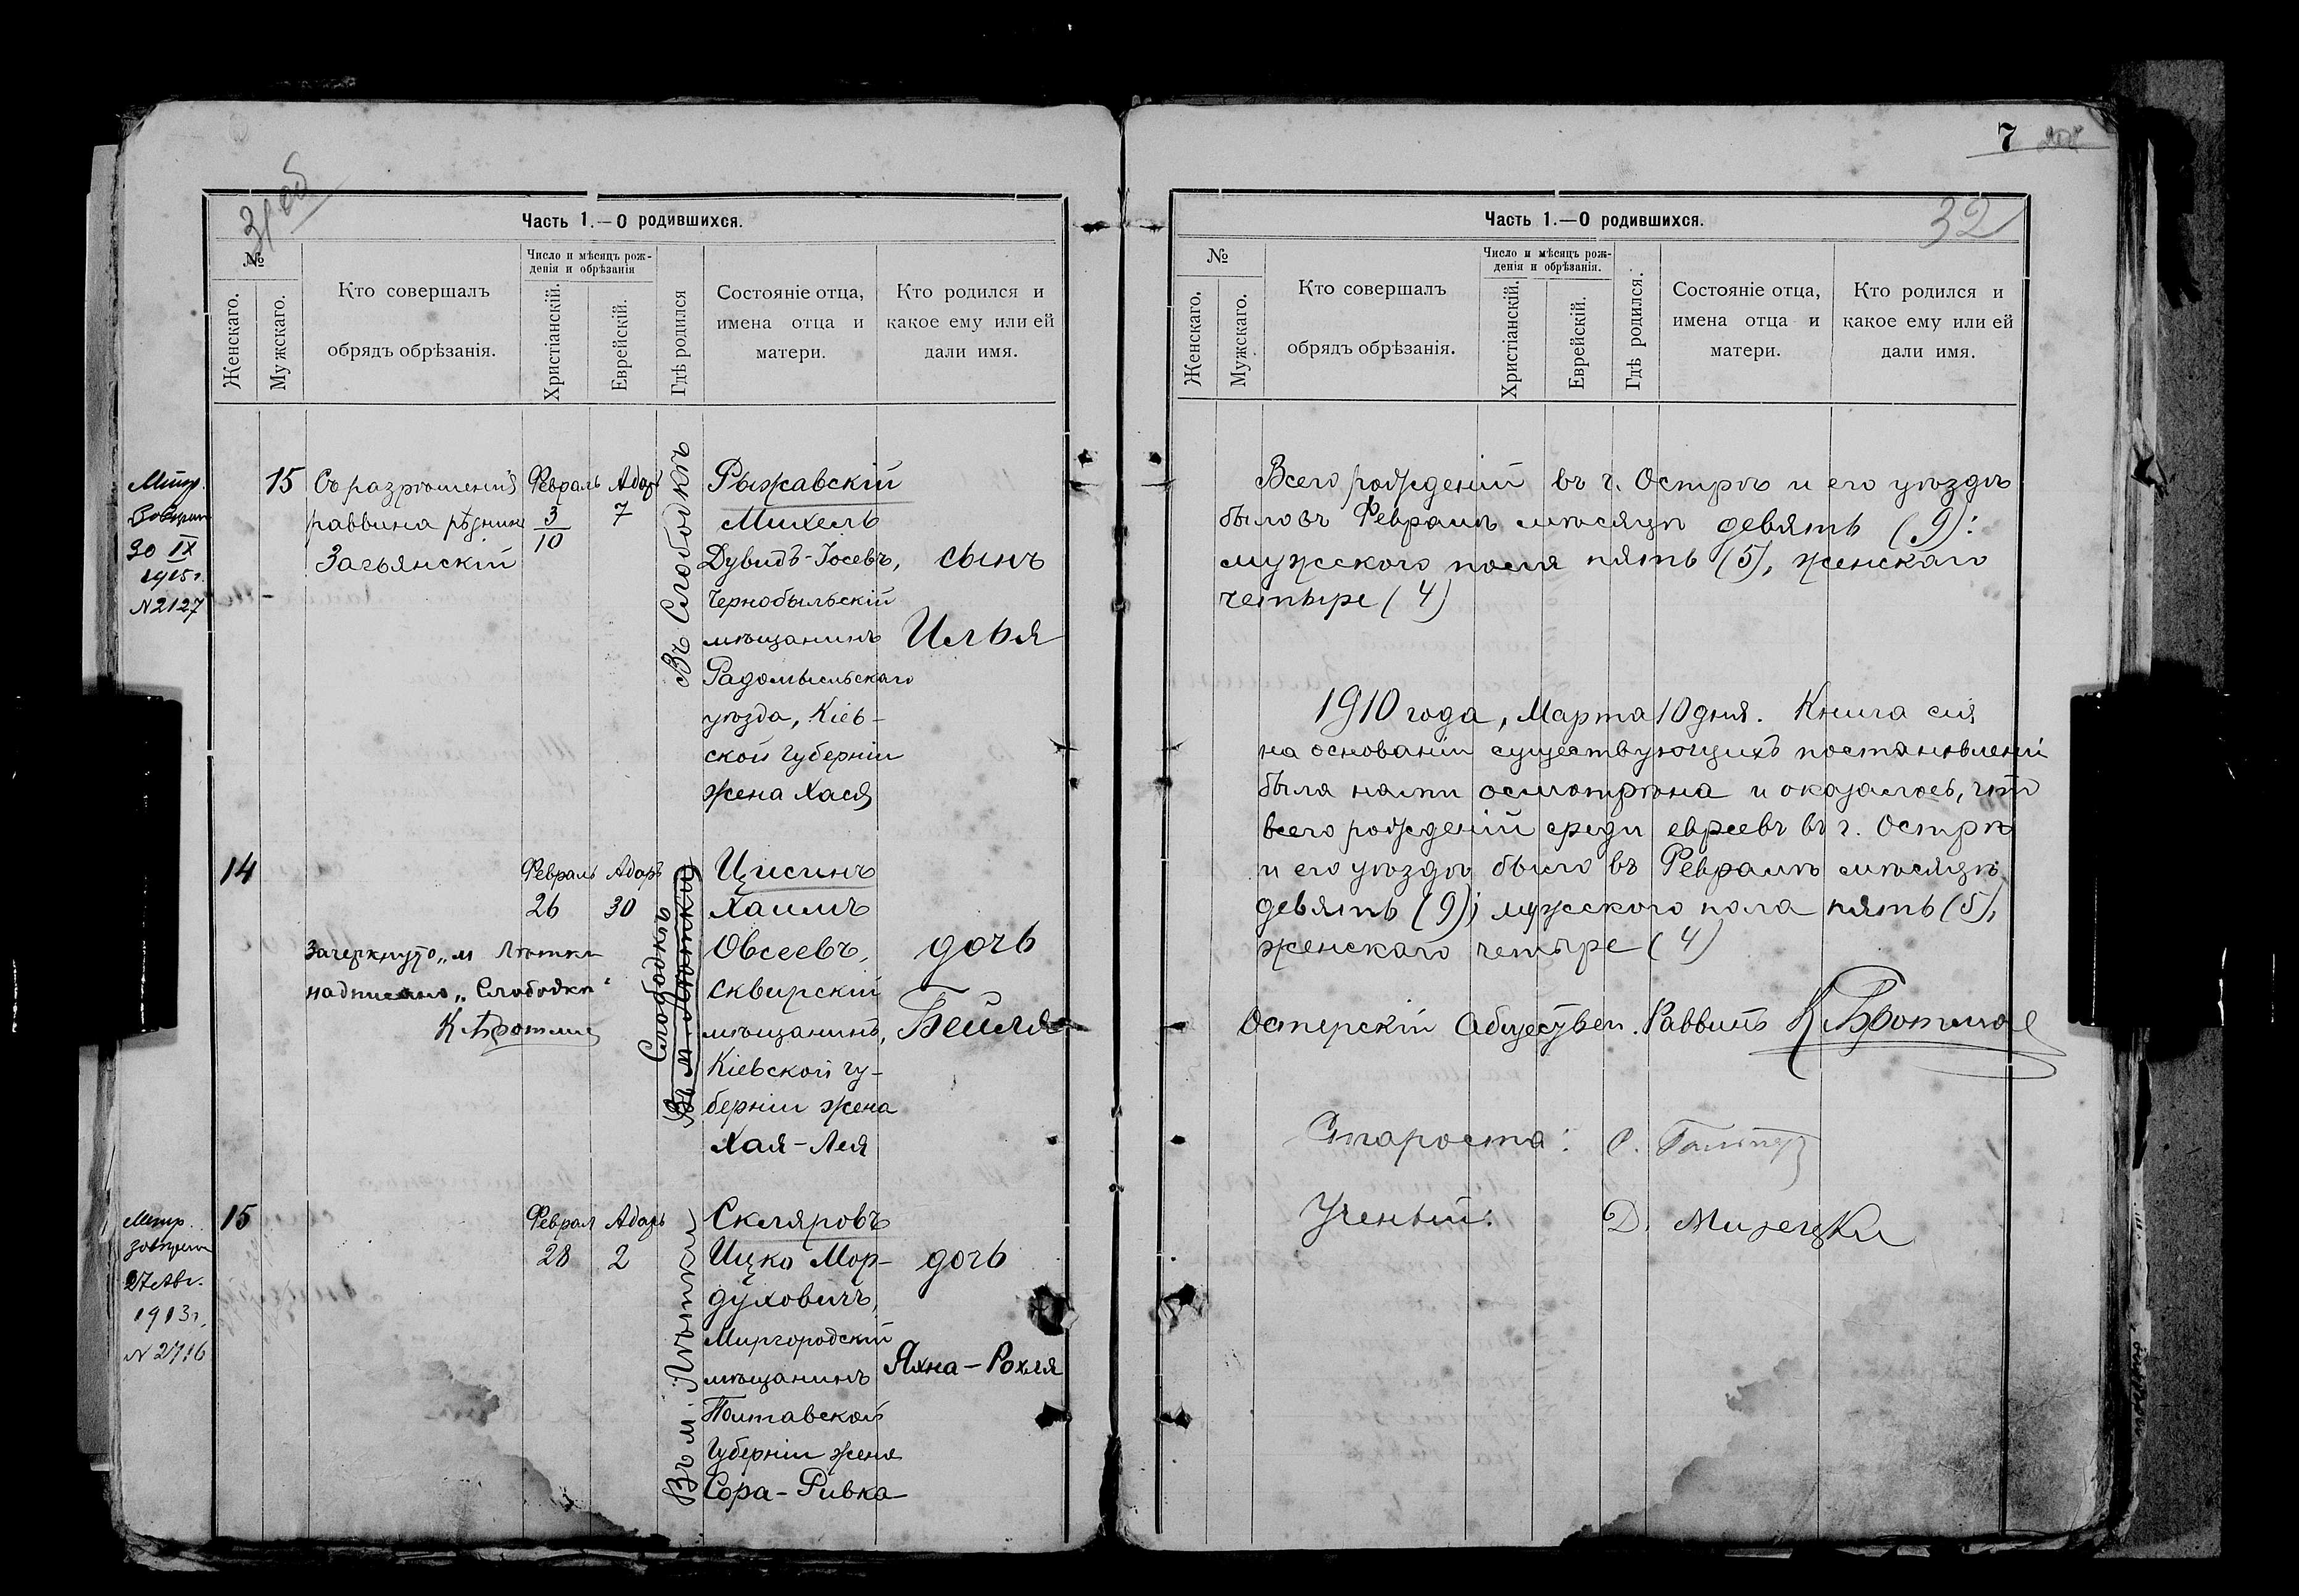 31 об
Часть 1.—О родившихся.
№
Женскаго.
Мужскаго.
Кто совершалъ
обрядъ обрѣзанія.
Число и мѣсяцъ рож-
денія и обрѣзанія
Христіанскій.
Еврейскій.
Гдѣ родился
Состояніе отца,
имена отца и
матери.
Кто родился и
какое ему или ей
дали имя.
30 IX
1915 г.
N 2127
15
Съ разрѣшенія
раввина рѣзникъ
Загьянскій
Февраль
3
10
Адаръ
7
Въ Слободкѣ
Рыжавскій
Михель
Дувидъ-Іосевъ,
Чернобыльскій
мѣщанинъ
Радомысльскаго
уѣзда, Кіев-
ской губерніи
жена Хася
сынъ
Илья
14
Февраль
26
Адаръ
30
Зачеркнуто „м Лѣтки
надписано „Слободкѣ“
Слободкѣ
Въ м. Лѣтки
Цисинъ
Хаимъ
Овсеевъ,
сквирскій
мѣщанинъ,
Кіевской гу-
берніи жена
Хая-Лея
дочь
Бейля
Метр.
27 Авг.
1913 г.
15
Феврал
28
Адаръ
2
Въ м. Лѣтки
Скляровъ
Ицко Мор-
духовичъ,
Миргородскій
мѣщанинъ
Полтавской
губерніи жена
Сора-Ривка
дочь
Яхна-Рохля
7
32
Часть 1.—О родившихся.
№
Женскаго.
Мужскаго.
Кто совершалъ
обрядъ обрѣзанія.
Число и мѣсяцъ рож-
денія и обрѣзанія.
Христіанскій.
Еврейскій.
Гдѣ родился.
Состояніе отца,
имена отца и
матери.
Кто родился и
какое ему или ей
дали имя.
Всего рожденій въ г. Острѣ и его уѣздѣ
было въ Февралѣ мѣсяцѣ девять (9):
мужского пола пять (5), женскаго
четыре (4)
1910 года, Марта 10 дня. Книга сія
на основаніи существующихъ постановленій
была нами осмотрѣна и оказалось, что
всего рожденій среди евреевъ въ г. Острѣ
и его уѣздѣ было въ Февралѣ мѣсяцѣ
девять (9); мужского пола пять (5),
женскаго четыре (4)
Остерскій Обществен. Раввинъ
Староста:
Ученый: